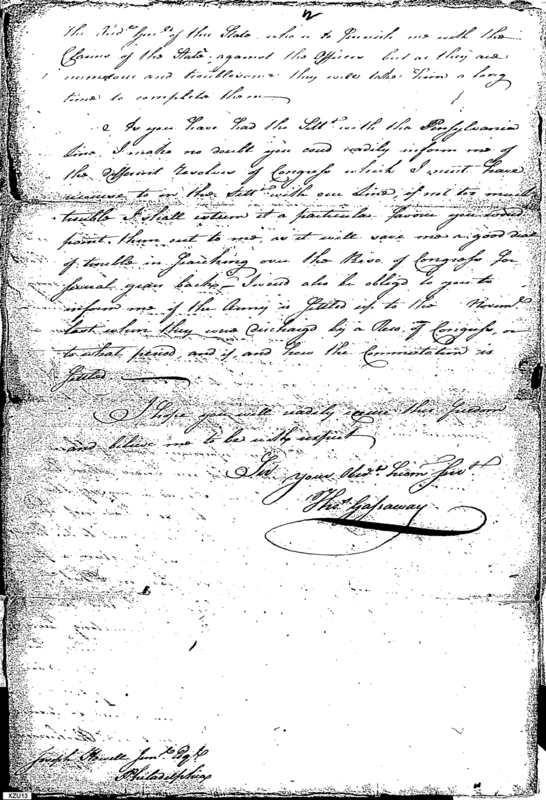 2
the Aud.r Gen.l of this State, who is to Furnish me with the
Claims of the State, against the Officers but as they are
numerous and troublesome they will take him a long
time to complete them
As you have had the Settt. with the Pensylvania
Line I make no doubt you could readily inform me of
the different Resolves of Congress which I must have
recourse to in the Settt. with our Line, if not too much
trouble I shall esteem it a particular favour you would
point them out to me, as it will save me a good deal
of trouble in Searching over the Reso. of Congress for
several years back, I would also be obliged to you to
inform me if the Army is Settled up to the Novemr.
last when they were discharged by a Reso. of Congress, or
to what period, and if, and how the Commutation is
Settled
I Hope you will readily excuse this freedom
and believe me to be with respect
Sir
your Obed.t Hum. Serv.t
Tho.s Gassaway
Joseph Howell Jun.r Esq.r
Philadelphia
XZU13